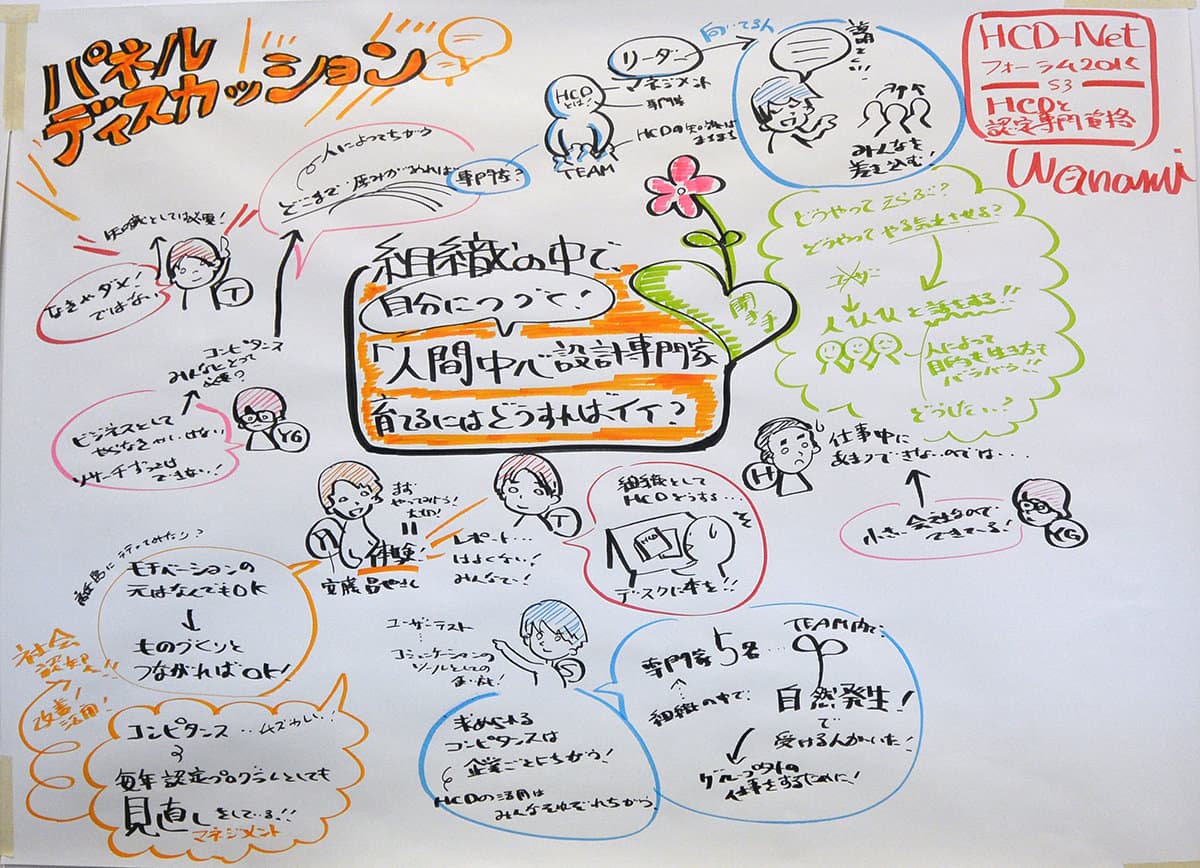 パネル
ディスカッション
HCD-Net
フォーラム2015
S3
HCDと
認定専門資格
Wanami
リーダー
向いてる人
マネジメント
専門性
HCD
とは!
TEAM
みんなを
差し込む!
人によってちがう
どこまで 厚みがあれば
専門家?
知識としては必要!
なきゃダメ!
ではない
T
コンピタンス
みんなにとって
必要?
ビジネスとして
やらなきゃいけない
リサーチずっとは
できない!
YG
組織の中で、
自分につづく!
「人間中心設計専門家
育てるにはどうすればイイ?
聞き手
どうやってえらぶ?
どうやってやる気にさせる?
ユーザー
人と話をする!!
人によって
目的も生き方も
バラバラ!!
どうしたい?
H
仕事中に
あまりできないのでは....
小さい会社なので
できている!
YG
まず
やってみよう!
大切!
体験!
T
レポート...
はよくない!
みんなで!
組織として
HCDどうする...
HCD
デスクに本を!!
離島に行ってみたり?
モチベーションの
元はなんでもOK
ものづくりと
つながればOK!
社会
認知へ!!
改善!
活用!
コンピタンス...ムズかしい!
毎年認定プログラムとしても
見直しをしている!!
マネジメント
ユーザーテスト
コミュニケーションの
ツールとしての
S
求められる
コンピタンスは
企業ごとにちがう!
HCDの活用は
みんなそれぞれちがう
専門家5名...
組織の中で、
TEAM内で
自然発生!
で
受ける人がいた!
グループ外の
仕事をするために!